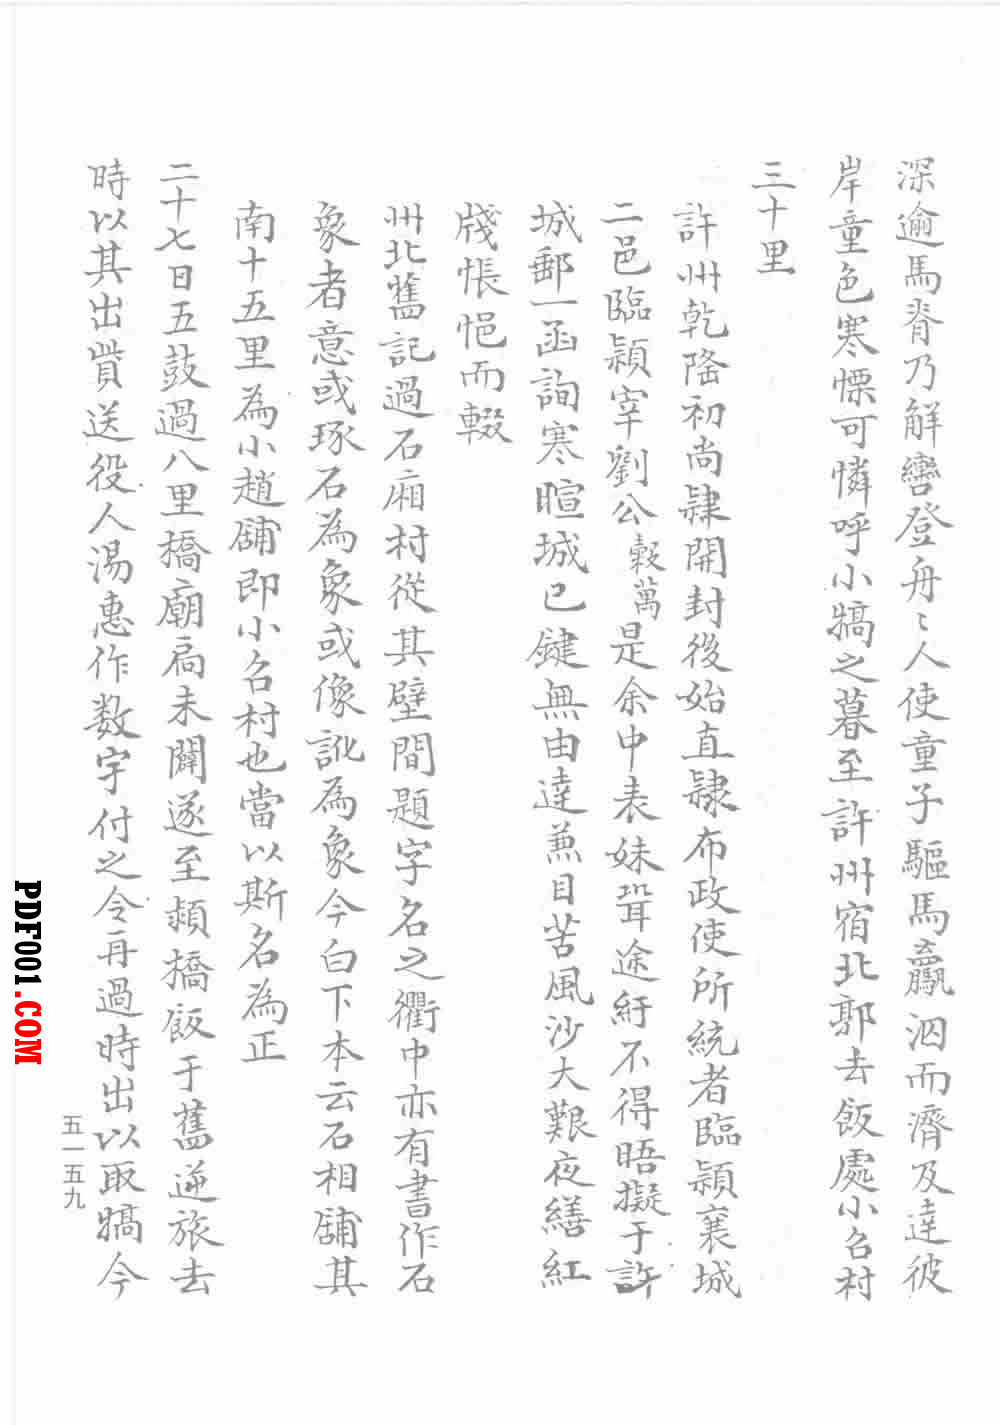 深逾馬脊乃解轡登舟〻人使童子驅馬驘泅而濟及達彼
岸童色寒慄可憐呼小犒之暮至許州宿北郭去飯處小召村
三十里
許州乾隆初尚隸開封後始直隸布政使所統者臨潁襄城
二邑臨潁宰劉公轂萬是余中表妹壻途紆不得晤擬于許
城郵一函詢寒暄城已鍵無由達兼目苦風沙大艱夜繕紅
牋悵悒而輟
州北舊記過石廂村從其壁間題字名之衢中亦有書作石
象者意或琢石為象或像訛為象今白下本云石相舖其
南十五里為小趙舖即小召村也當以斯名為正
二十七日五鼓過八里橋廟扃未闢遂至潁橋飯于舊逆旅去
時以其出貲送役人湯惠作数字付之令再過時出以取犒今
五一五九
PDF001.COM